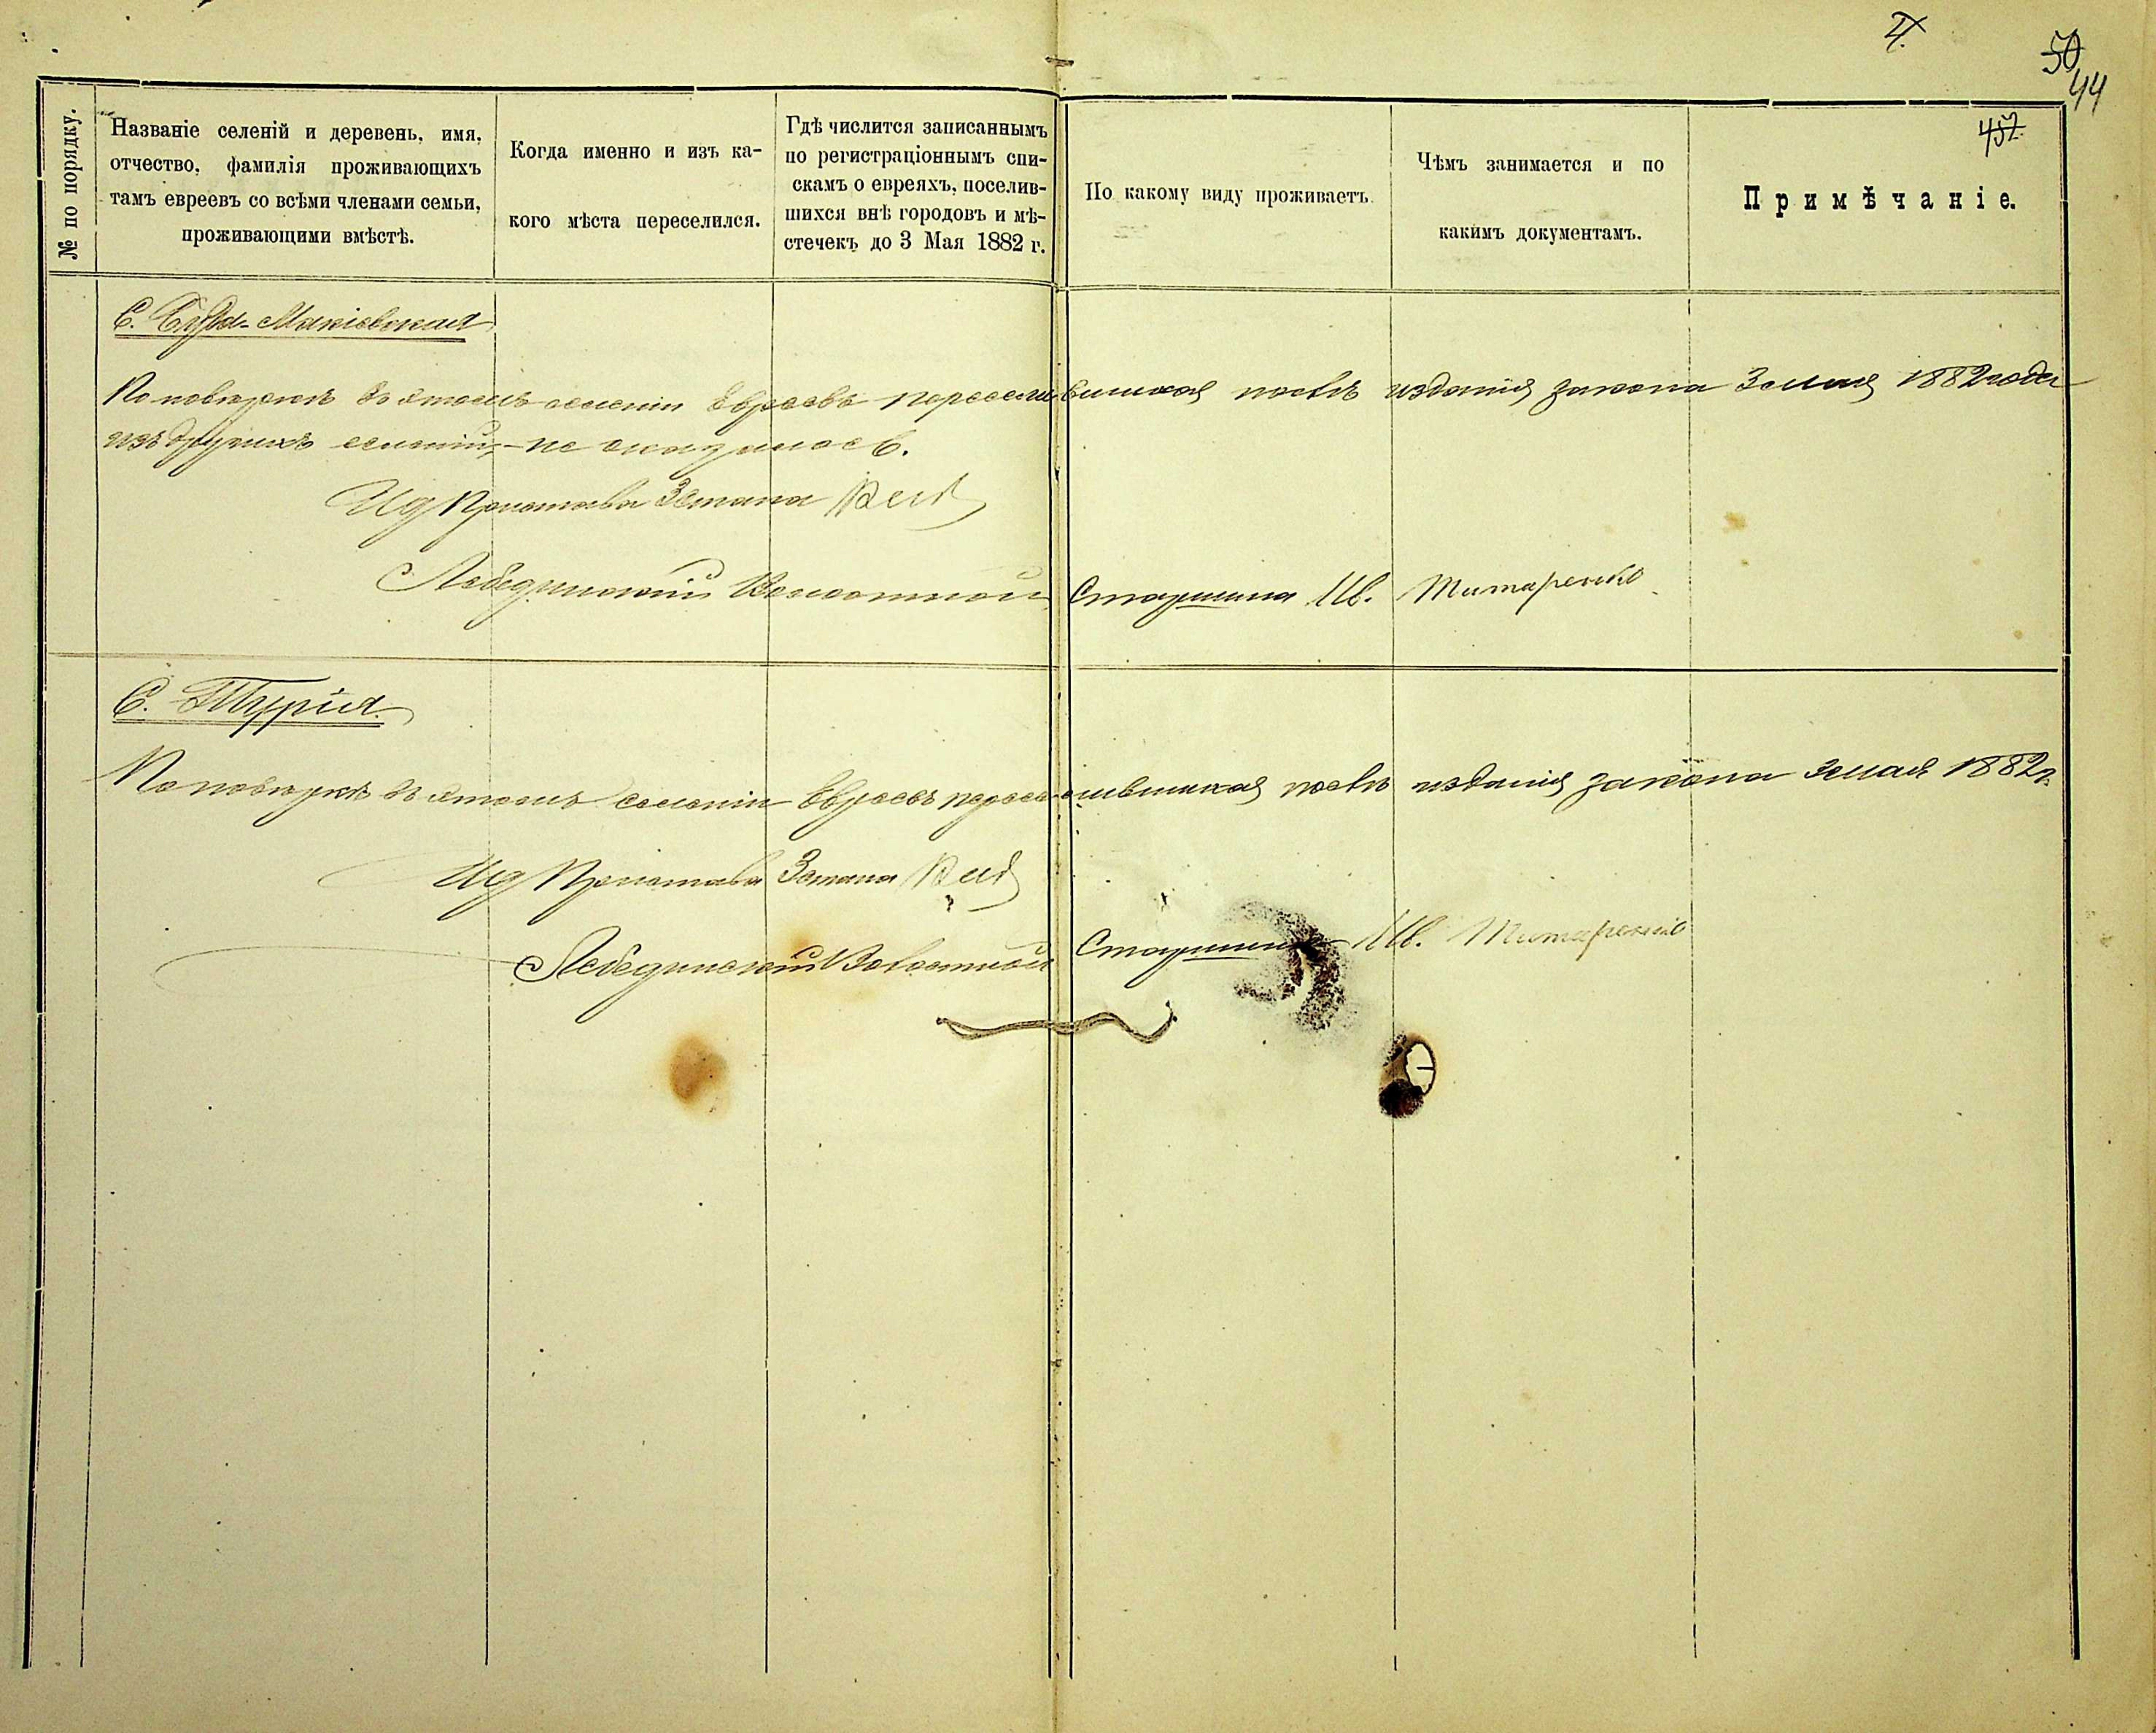 50
44
457.
№ по порядку.
Названіе селеній и деревень, имя,
отчество, фамилія проживающихъ
тамъ евреевъ со всѣми членами семьи,
проживающими вмѣстѣ.
Когда именно и изъ ка-
кого мѣста переселился.
Гдѣ числится записаннымъ
по регистраціоннымъ спи-
скамъ о евреяхъ, поселив-
шихся внѣ городовъ и мѣ-
стечекъ до 3 Мая 1882 г.
По какому виду проживаетъ.
Чѣмъ занимается и по
какимъ документамъ.
Примѣчаніе.
С. Буда-Макіевская
По повѣркѣ въ этомъ селеніи Евреевъ переселившихся послѣ изданія закона 3 мая 1882 года
изъ другихъ селеній, - не оказалось.
Ид Пристава 3 стана
Лебединскій Волостной Старшина Ив. Титаренко
С. Турія.
По повѣркѣ въ этомъ селеніи Евреевъ переселившихся послѣ изданія закона 3 мая 1882 г.
Ид Пристава 3 стана
Лебединскій Волостной Старшина Ив. Титаренко